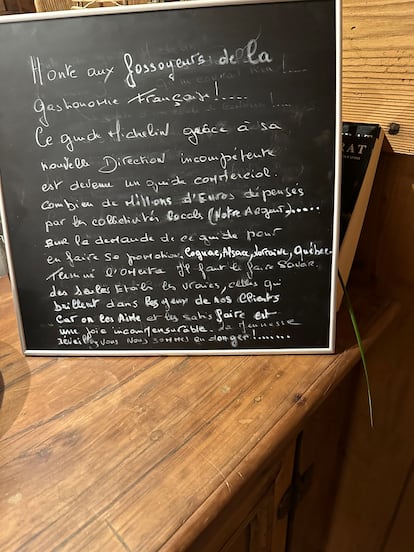 Honte aux fossoyeurs de la
gastronomie Française !....
Ce guide Michelin grâce à sa
nouvelle Direction incompétente
est devenu un guide commercial.
combien de Millions d'Euros dépensés
par les collectivités locales (Notre Argent).....
sur la demande de ce guide pour
en faire sa promotion. Cognac, Alsace, Lorraine, Québec.
Terminé l'Omerta Il faut le faire savoir.
des seules Etoiles les vraies, celles qui
brillent dans les yeux de nos clients
car on les Aime et les satisfaire est
une joie incommensurable. La Jeunesse
réveillez vous Nous sommes en danger !......
RAT